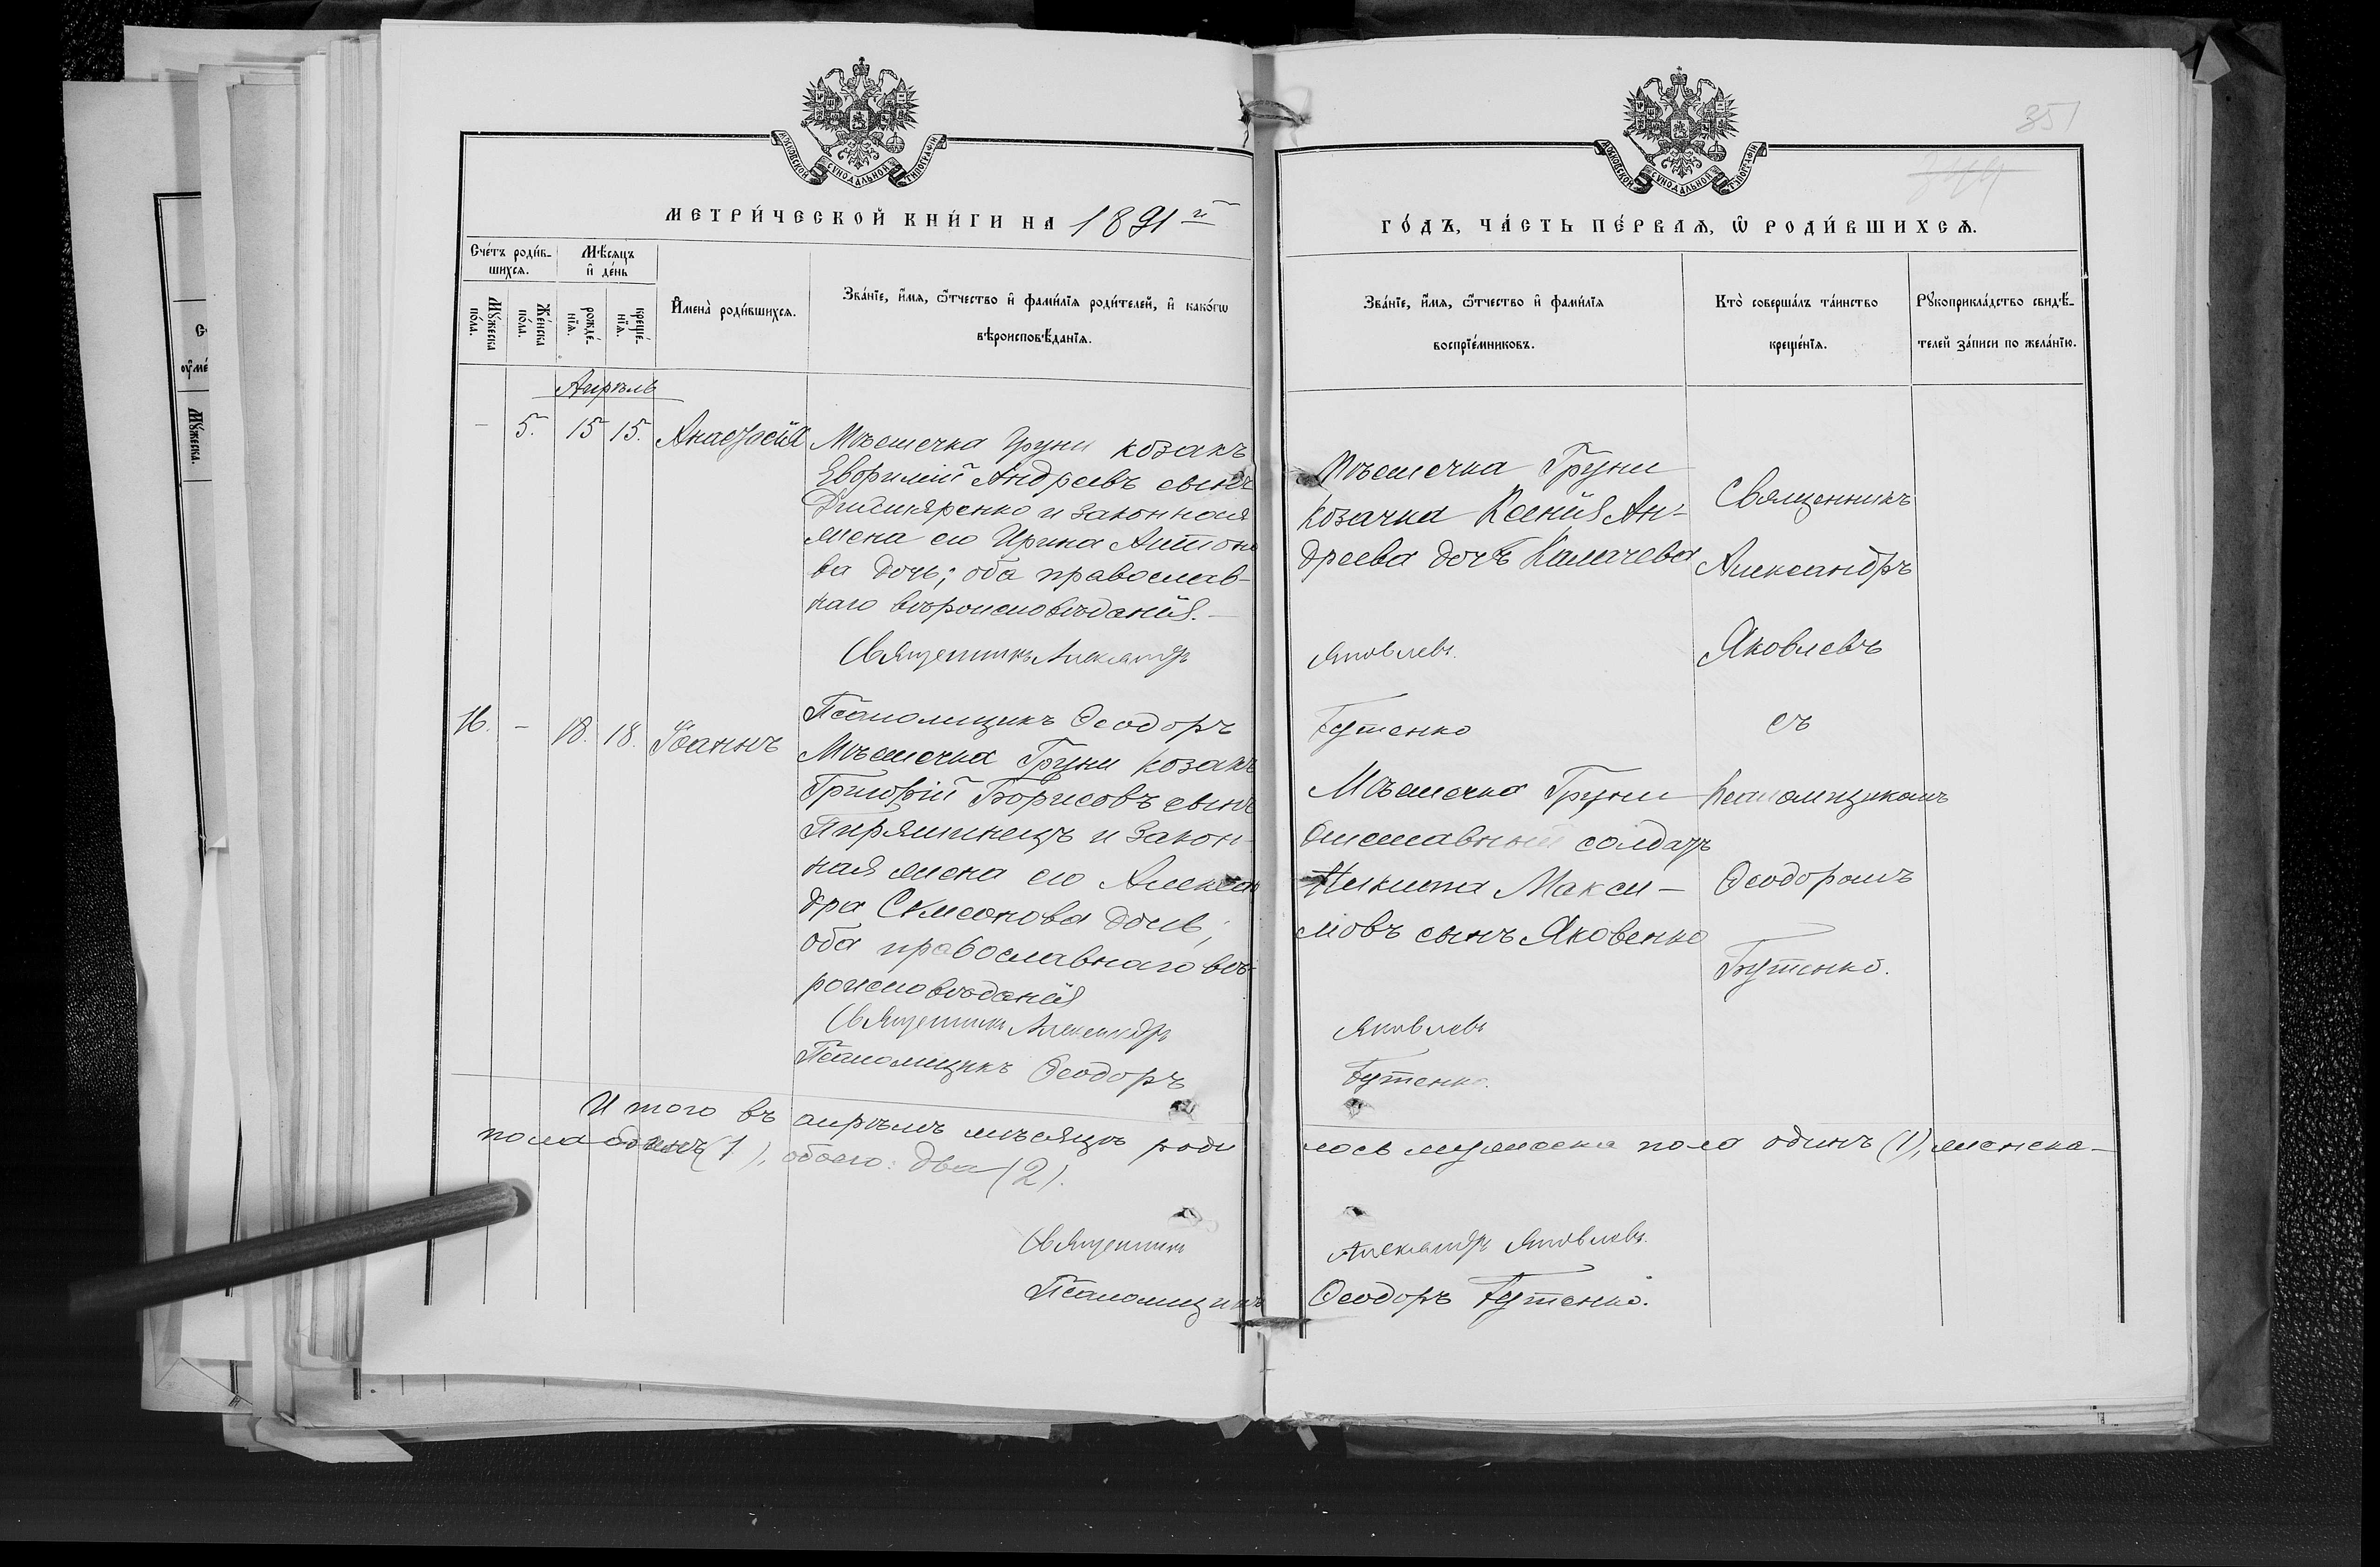 МОСКОВСКОЙ СѴНОДАЛЬНОЙ ТИПОГРАФІИ
МОСКОВСКОЙ СѴНОДАЛЬНОЙ ТИПОГРАФІИ
351
МЕТРИ́ЧЕСКОЙ КНИ́ГИ НА 1891й
ГО́ДЪ, ЧА́СТЬ ПЕ́РВАѦ, Ѡ РОДИ́ВШИХСѦ.
Сче́тъ роди́в-
шихсѧ.
Мꙋ́жеска по́ла.
Же́нска по́ла.
Мѣ́сяцъ
и де́нь
рожде́-
нїѧ.
креще́-
нїѧ.
Имена̀ роди́вшихсѧ.
Зва́нїе, и́мѧ, ѻ҆́тчество и҆ фами́лїѧ роди́телей, и҆ како́гѡ
вѣроисповѣ́данїѧ.
Зва́нїе, и́мѧ, ѻ҆́тчество и҆ фами́лїѧ
воспрїе́мниковъ.
Кто̀ соверша́лъ та́инство
креще́нїѧ.
Рꙋкоприкла́дство свидѣ́-
телей за́писи по жела́нїю.
Апрѣль
– 5. 15 15. Анастасія
Мѣстечка Груни козакъ
Евфимій Андреевъ сынъ
и законная
жена его Ирина Антоно
ва дочь; оба православ-
наго вѣроисповѣданія.–
Священникъ Александръ
Псаломщикъ Ѳеодоръ
Мѣстечка Груни
козачка Ксенія Ан-
дреева дочь Калачева
Яковлевъ.
Бутенко
Священникъ
Александръ
Яковлевъ
съ
псаломщикомъ
Ѳеодоромъ
Бутенко.
16. – 18. 18. Іоаннъ
Мѣстечка Груни козакъ
Григорій Борисовъ сынъ
Пирятинецъ и закон-
ная жена его Алексан
дра Симеонова дочь;
оба православнаго вѣ-
роисповѣданія
Священникъ Александръ
Псаломщикъ Ѳеодоръ
Мѣстечка Груни
отставный солдатъ
Никита Макси-
мовъ сынъ Яковенко
Яковлевъ
Бутенко.
Итого въ апрѣлѣ мѣсяцѣ роди лось мужеска пола одинъ (1), женска-
пола одинъ (1), обоего: два (2).
Священникъ Александръ Яковлевъ.
Псаломщикъ Ѳеодоръ Бутенко.